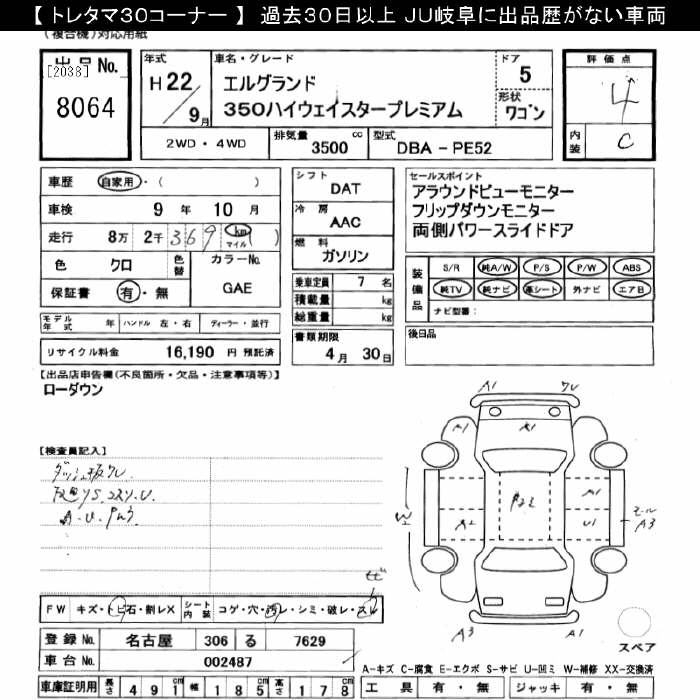 【 トレタマ30コーナー 】 過去30日以上 JU岐阜に出品歴がない車両
(複合機)対応用紙
出品 No.
[2038]
8064
年式
H22/9月
車名・グレード
エルグランド
350ハイウェイスタープレミアム
ドア
5
形状
ワゴン
評価点
4
内装
C
2WD・4WD
排気量
3500 cc
型式
DBA - PE52
車歴 自家用・( )
車検 9 年 10 月
走行 8万 2千 369 km マイル ( )
色 クロ
色替
カラーNo.
GAE
保証書 有・無
モデル年式 年 ハンドル 左・右 ディーラー・並行
リサイクル料金 16,190 円 預託済
シフト
DAT
冷房
AAC
燃料
ガソリン
乗車定員 7 名
積載量 kg
総重量 kg
書類期限
4月 30日
セールスポイント
アラウンドビューモニター
フリップダウンモニター
両側パワースライドドア
装備品
S/R 純A/W P/S P/W ABS
純TV 純ナビ 革シート 外ナビ エアB
ナビ型番:
後日品
【出品店申告欄(不良箇所・欠品・注意事項等)】
ローダウン
【検査員記入】
ダッシュ板ワレ
A・U
FW キズ・トビ石・割レX
シート内装 コゲ・穴・汚レ・シミ・破レ・スレ
登録 No. 名古屋 306 る 7629
車台 No. 002487
車庫証明用 長さ 491cm 幅 185cm 高さ 178cm
A1 ワレ
A1 A1
A1
W2 A2 U1
モール
A3
A3 A1
スペア
A-キズ C-腐食 E-エクボ S-サビ U-凹ミ W-補修 XX-交換済
工具 有・無 ジャッキ 有・無